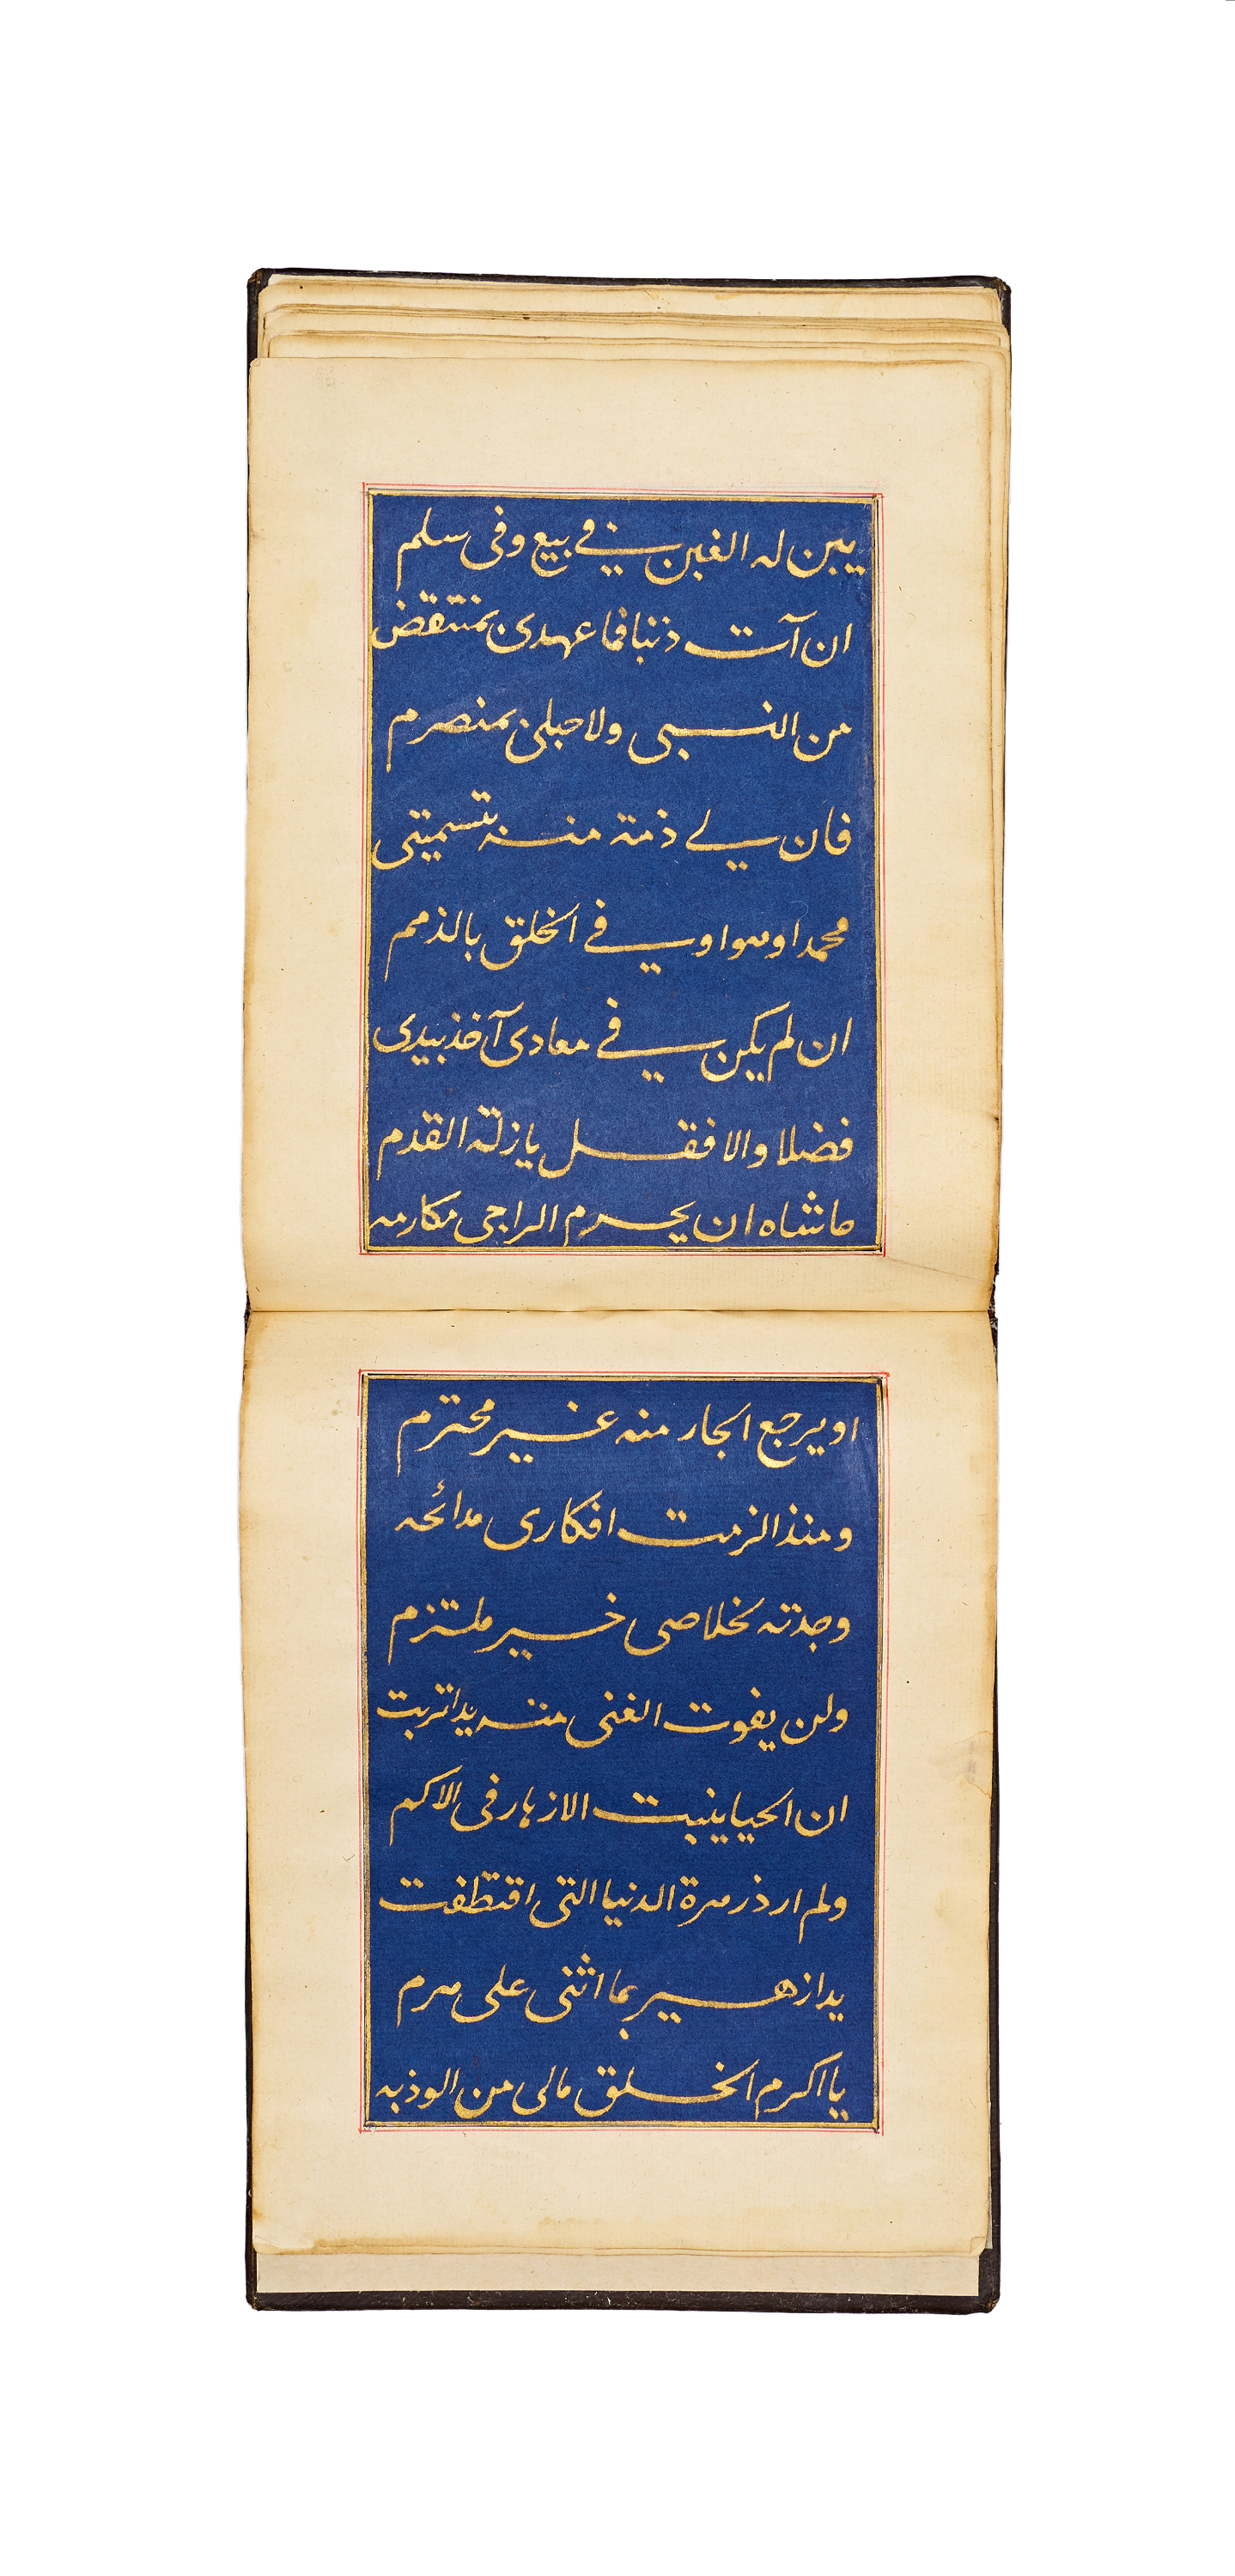 يبن له الغبن في بيع وفى سلم
ان آت ذنبا فما عهدى بمنتقض
من النبى ولا حبلى بمنصرم
فان لے ذمة منه بتسميتى
محمدا وهوا وفے فے الخلق بالذمم
ان لم يكن فے معادى آخذ بيدى
فضلا والا فقل يا زلة القدم
حاشاه ان يحرم الراجى مكارمه
او يرجع الجار منه غير محترم
ومنذ الزمت افكارى مدائحه
وجدته لخلاصى خير ملتزم
ولن يفوت الغنى منه يدا تربت
ان الحيا ينبت الازهار فى الاكم
ولم ارد زهرة الدنيا التى اقتطفت
يدا زهير بما اثنى على هرم
يا اكرم الخلق مالى من الوذ به